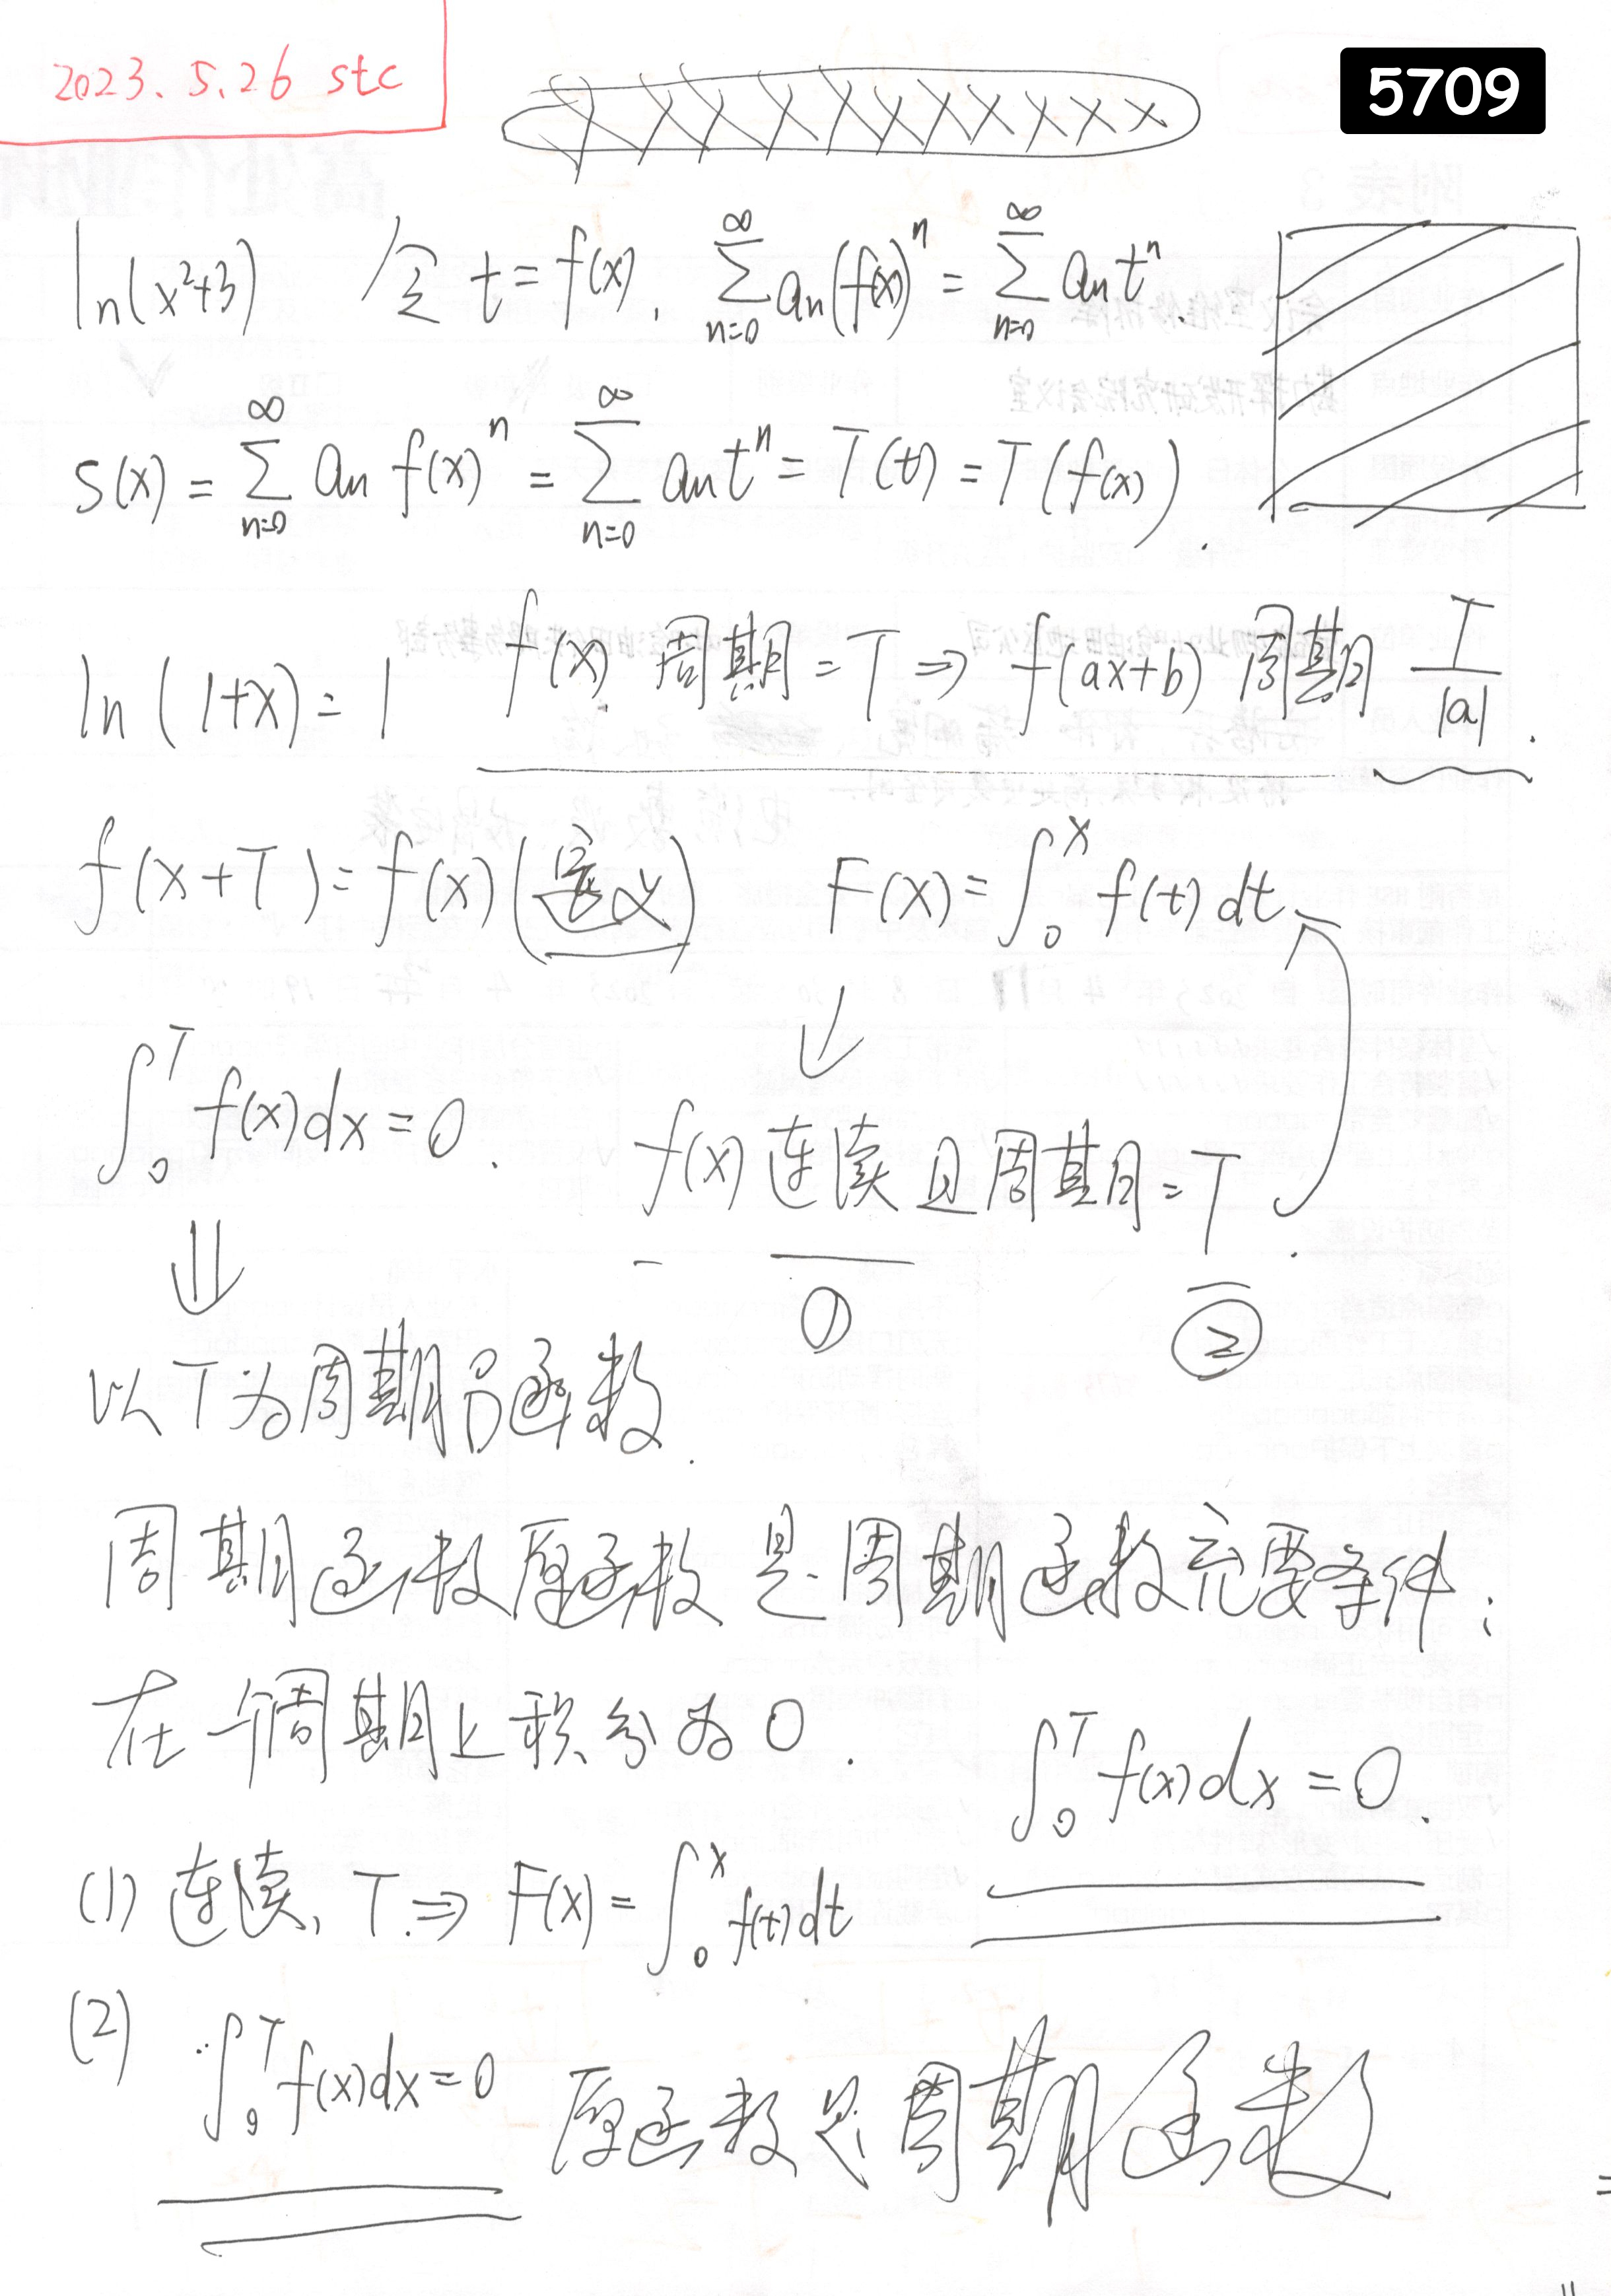 2023.5.26 stc
5709
ln(x²+3) 令 t=f(x). ∑_{n=0}^{∞} aₙ(f(x))ⁿ = ∑_{n=0}^{∞} aₙtⁿ.
S(x) = ∑_{n=0}^{∞} aₙ f(x)ⁿ = ∑_{n=0}^{∞} aₙtⁿ = T(t) = T(f(x)).
ln(1+x)=1 f(x) 周期=T ⇒ f(ax+b) 周期 T/|a|.
f(x+T)=f(x) (定义) F(x)=∫₀ˣ f(t)dt
↓
∫₀ᵀ f(x)dx=0. f(x) 连续且周期=T.
⇓ ① ②
以T为周期的函数.
周期函数原函数是周期函数充要条件:
在一个周期上积分为0.
∫₀ᵀ f(x)dx=0.
(1) 连续, T. ⇒ F(x)=∫₀ˣ f(t)dt
(2) ∫₀ᵀ f(x)dx=0 原函数是周期函数